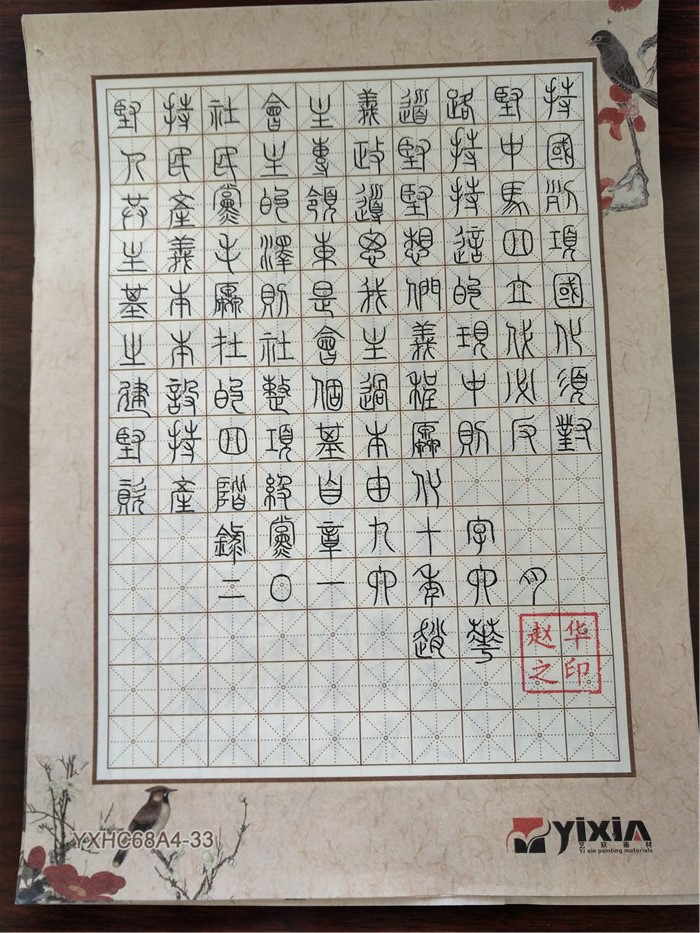 堅持社會主義道路堅持
人民民主專政堅持中國
共產黨的領導堅持馬列
主義毛澤東思想這四項
基本原則是我們的立國
之本在社會主義現代化
建設的整個過程中必須
堅持四項基本原則反對
資產階級自由化
錄黨章九十字
二〇一六年六月
趙華
赵华
之印
YXHC68A4-33
yixin
Yi xin painting materials